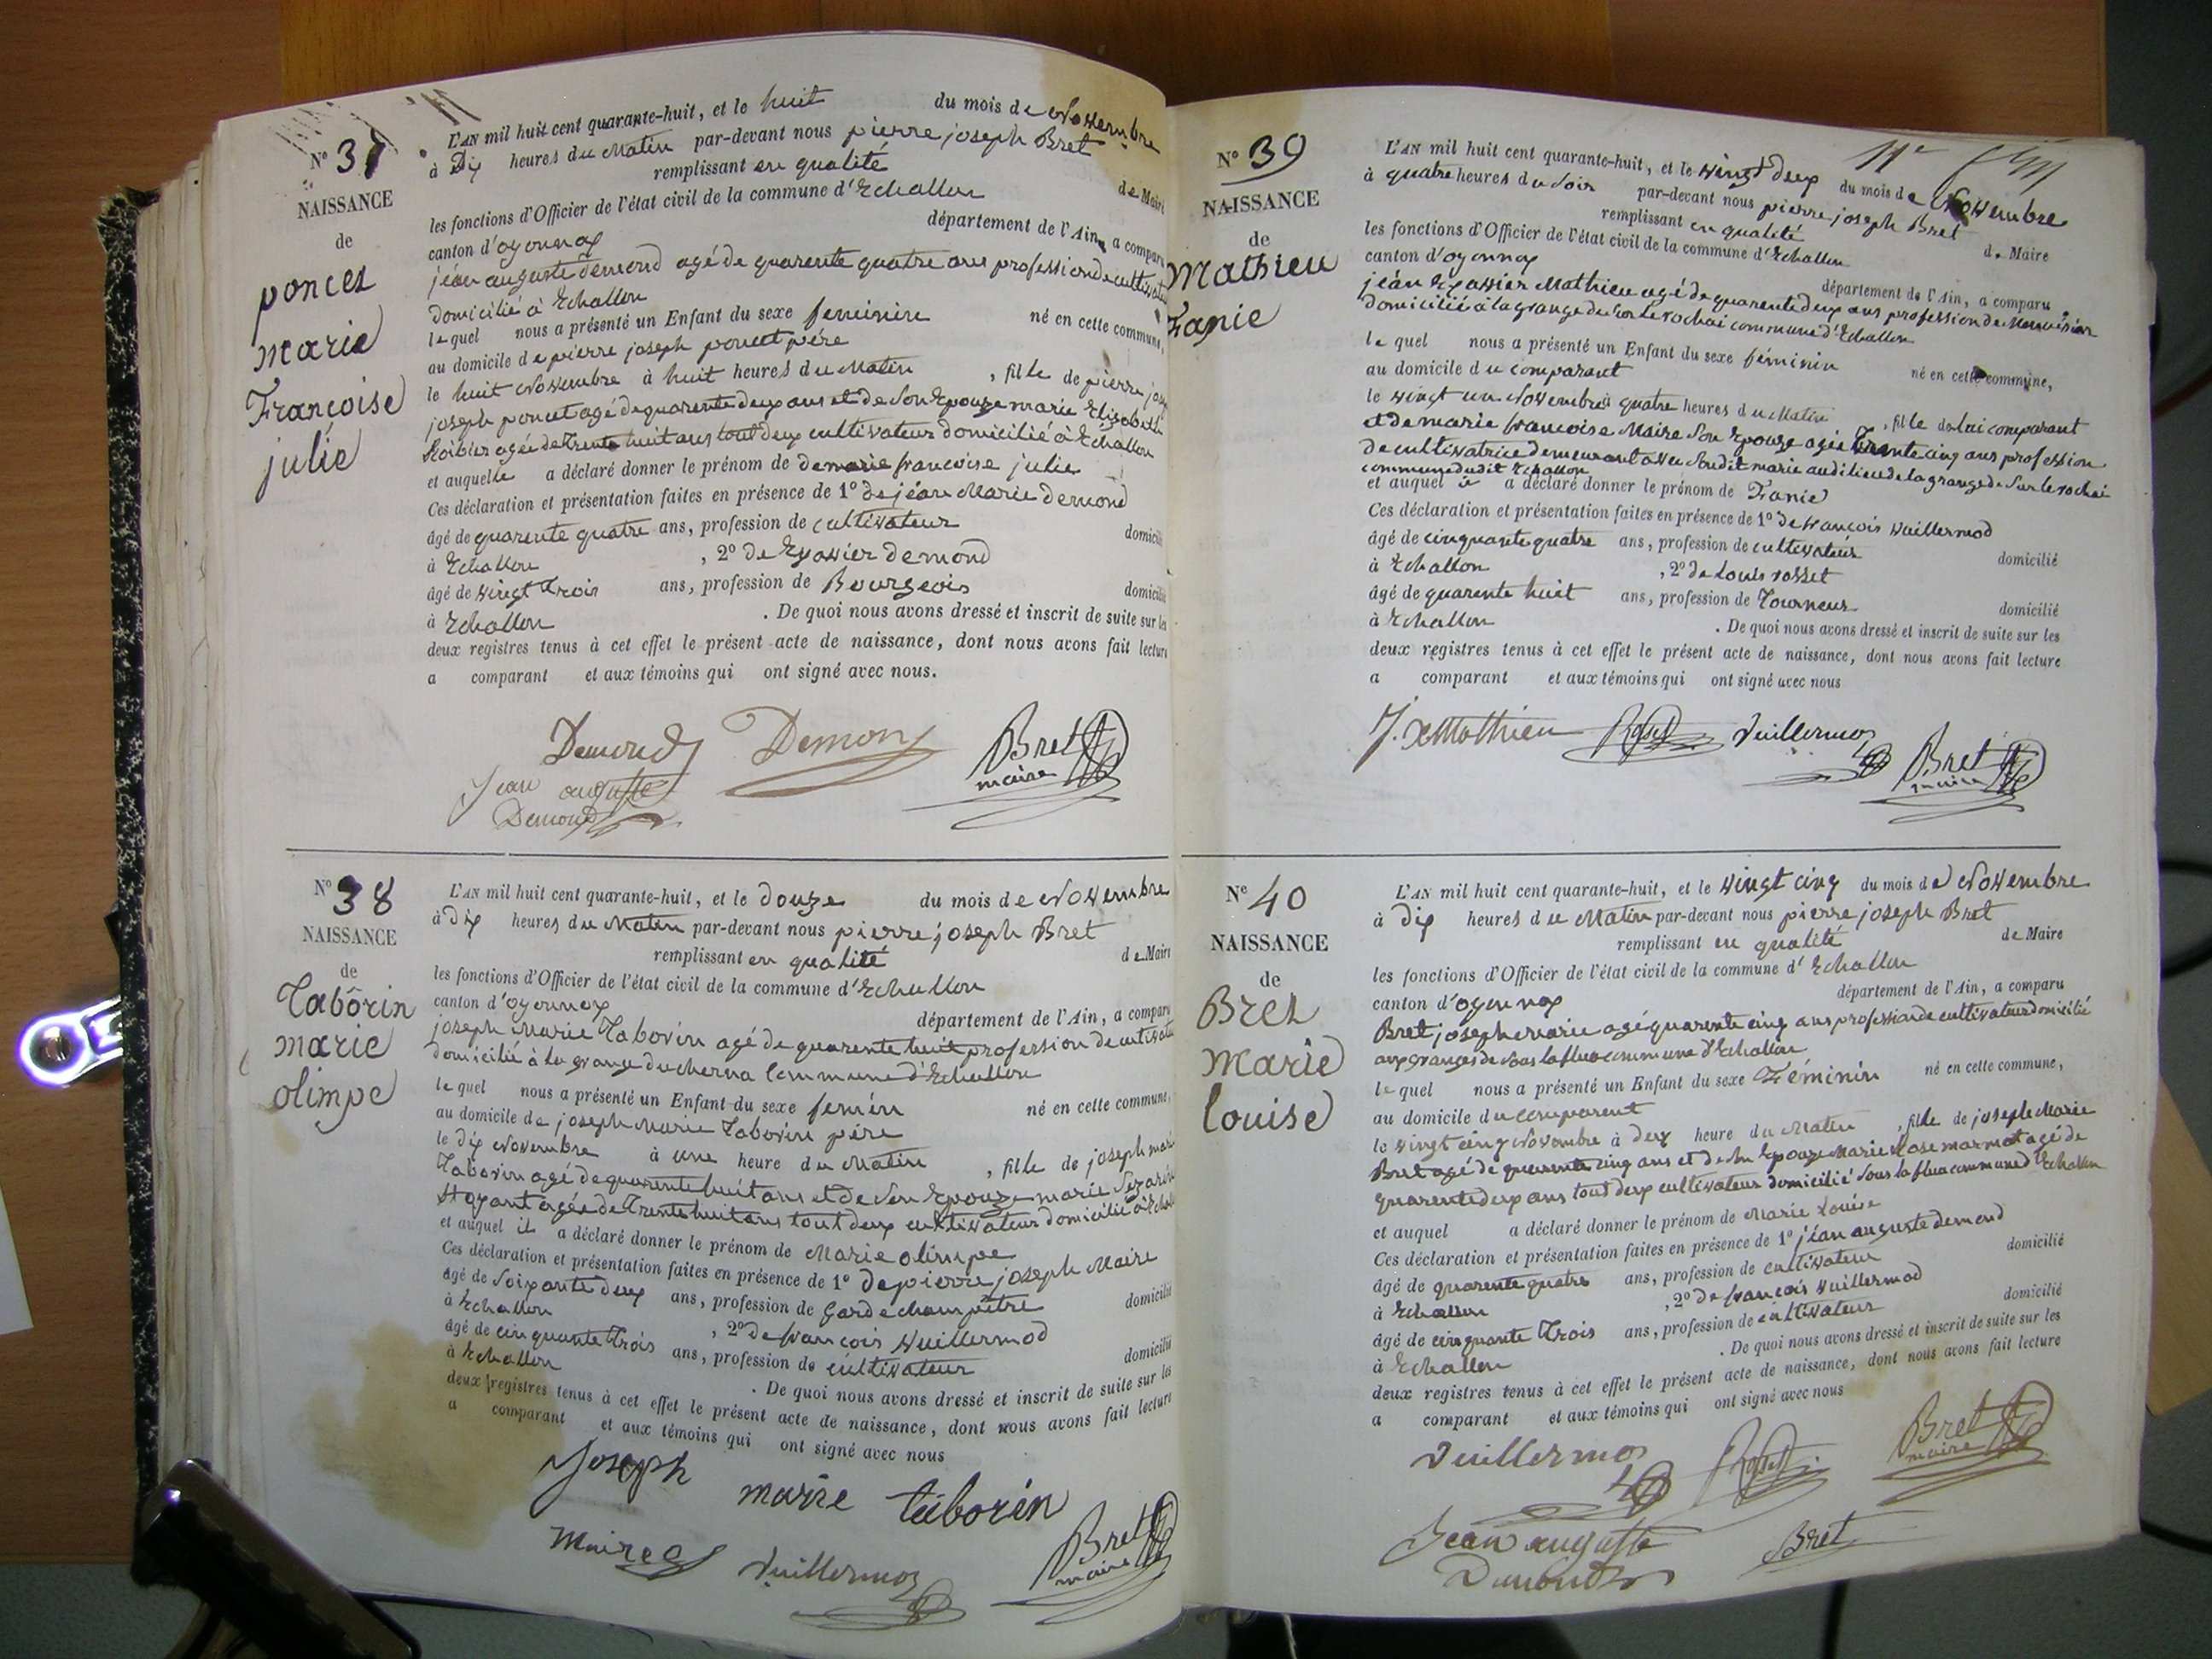 N° 37
NAISSANCE
de
poncet
marie
Françoise
julie
L'AN mil huit cent quarante-huit, et le huit du mois de Novembre
à Dix heures du Matin par-devant nous pierre joseph Bret
remplissant en qualité de Maire
les fonctions d'Officier de l'état civil de la commune d'Echallon
canton d'oyonnax département de l'Ain, a comparu
jéan auguste demond agé de quarente quatre ans profession de cultivateur
domicilié à Echallon
lequel nous a présenté un Enfant du sexe feminin né en cette commune,
au domicile de pierre joseph poncet pére
le huit Novembre à huit heures du Matin, fille de pierre
joseph poncet agé de quarente deux ans et de son Epouze marie Elisabeth
agée de trente huit ans tout deux cultivateur domicilié à Echallon
et auquelle a déclaré donner le prénom de de marie francoise julie
Ces déclaration et présentation faites en présence de 1° de jéan Marie demond
âgé de quarente quatre ans, profession de cultivateur domicilié
à Echallon, 2° de Exavier demond
âgé de vingt trois ans, profession de Bourgeois domicilié
à Echallon. De quoi nous avons dressé et inscrit de suite sur les
deux registres tenus à cet effet le présent acte de naissance, dont nous avons fait lecture
a comparant et aux témoins qui ont signé avec nous.
Demond Demon Bret
maire
Jean auguste
Demond
N° 38
NAISSANCE
de
Tabôrin
marie
olimpe
L'AN mil huit cent quarante-huit, et le douze du mois de Novembre
à dix heures du Matin par-devant nous pierre joseph Bret
remplissant en qualité de Maire
les fonctions d'Officier de l'état civil de la commune d'Echallon
canton d'oyonnax département de l'Ain, a comparu
joseph Marie Taborin agé de quarente huit profession de cultivateur
domicilié à la grange du cherna Commune d'Echallon
lequel nous a présenté un Enfant du sexe feminin né en cette commune,
au domicile de joseph Marie Taborin pére
le dix Novembre à une heure du Matin, fille de joseph marie
Taborin agé de quarente huit ans et de son Epouze marie
agée de trente huit ans tout deux cultivateur domicilié à Echallon
et auquel il a déclaré donner le prénom de Marie olimpe
Ces déclaration et présentation faites en présence de 1° de pierre joseph Maire
âgé de Soixante deux ans, profession de garde champêtre domicilié
à Echallon, 2° de francois Vuillermod
âgé de cinquante trois ans, profession de cultivateur domicilié
à Echallon. De quoi nous avons dressé et inscrit de suite sur les
deux registres tenus à cet effet le présent acte de naissance, dont nous avons fait lecture
a comparant et aux témoins qui ont signé avec nous
Joseph marie taborin
Maire Vuillermoz Bret
maire
N° 39
NAISSANCE
de
Mathieu
Fanie
11e
L'AN mil huit cent quarante-huit, et le vingt deux du mois de Novembre
à quatre heures du Soir par-devant nous pierre joseph Bret
remplissant en qualité de Maire
les fonctions d'Officier de l'état civil de la commune d'Echallon
canton d'oyonnax département de l'Ain, a comparu
jéan Exavier Mathieu agé de quarente deux ans profession de Menuisier
domicilié à la grange du Sur le rochai commune d'Echallon
lequel nous a présenté un Enfant du sexe féminin né en cette commune,
au domicile du comparant
le vingt un Novembre à quatre heures du Matin, fille de lui comparant
et de marie francoise Maire son Epouze agée trente cinq ans profession
de cultivatrice demeurant avec son dit marie audit lieu de la grange de Sur le rochai
commune dudit Echallon
et auquel a déclaré donner le prénom de Fanie
Ces déclaration et présentation faites en présence de 1° de francois Vuillermod
âgé de cinquante quatre ans, profession de cultivateur domicilié
à Echallon, 2° de Louis rosset
âgé de quarente huit ans, profession de Tourneur domicilié
à Echallon. De quoi nous avons dressé et inscrit de suite sur les
deux registres tenus à cet effet le présent acte de naissance, dont nous avons fait lecture
a comparant et aux témoins qui ont signé avec nous
J. X Mathieu Rosset Vuillermoz Bret
maire
N° 40
NAISSANCE
de
Bret
Marie
Louise
L'AN mil huit cent quarante-huit, et le vingt cinq du mois de Novembre
à dix heures du Matin par-devant nous pierre joseph Bret
remplissant en qualité de Maire
les fonctions d'Officier de l'état civil de la commune d'Echallon
canton d'oyonnax département de l'Ain, a comparu
Bret joseph Marie agé quarente cinq ans profession de cultivateur domicilié
aux granges de Sous la flua commune d'Echallon
lequel nous a présenté un Enfant du sexe Féminin né en cette commune,
au domicile du comparent
le vingt cinq Novembre à deux heure du Matin, fille de joseph Marie
Bret agé de quarente cinq ans et de son Epouze Marie Rose marmet agé de
quarente deux ans tout deux cultivateur domicilié Sous la flua commune d'Echallon
et auquel a déclaré donner le prénom de Marie Louise
Ces déclaration et présentation faites en présence de 1° jéan auguste demond
âgé de quarente quatre ans, profession de cultivateur domicilié
à Echallon, 2° de francois Vuillermod
âgé de cinquante trois ans, profession de cultivateur domicilié
à Echallon. De quoi nous avons dressé et inscrit de suite sur les
deux registres tenus à cet effet le présent acte de naissance, dont nous avons fait lecture
a comparant et aux témoins qui ont signé avec nous
Vuillermoz Rosset Bret
maire
Jean auguste Bret
Demond